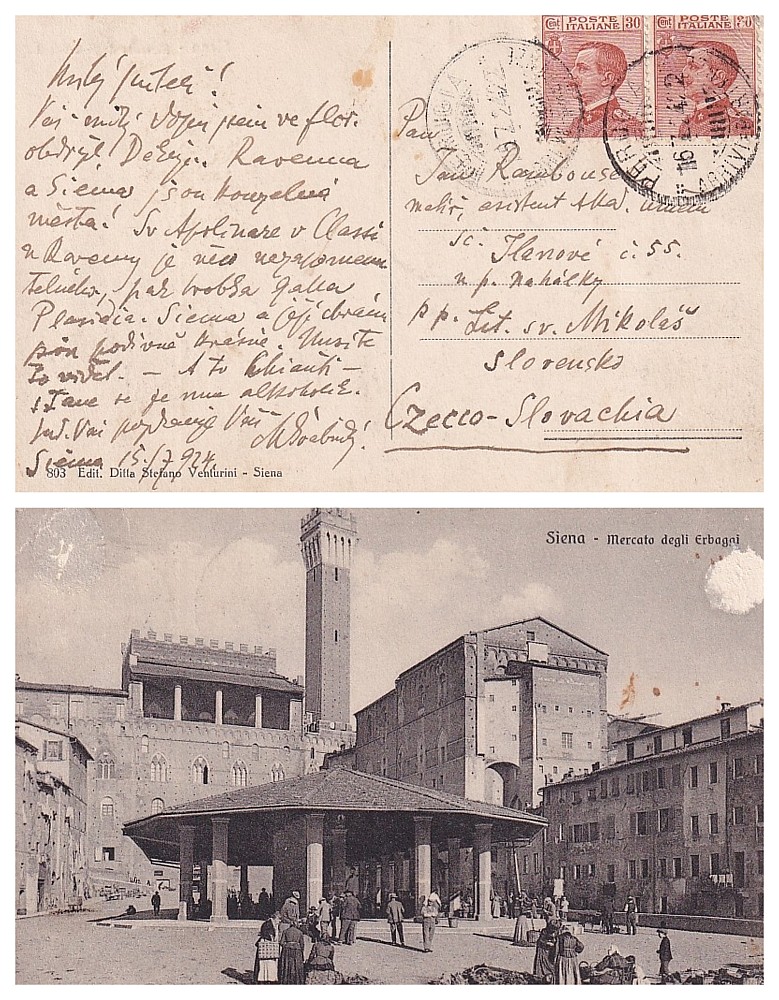 Milý příteli!
Váš milý dopis jsem ve flor.
obdržel Děkuji. Ravenna
a Siena jsou kouzelná
města! Sv Apolinare v Classi
u Ravenny je něco nezapomenu
telného, pak hrobka Galla
Placidia. Siena a její chrám
podivně krásné. Musíte
to vidět. – A to Chianti –
stane se ze mne alkoholik.
Vás pozdravuje Váš
Siena 15./7 924.
803 Edit. Ditta Stefano Venturini - Siena
Cent POSTE ITALIANE 30
Cent POSTE ITALIANE 30
PERUGIA
Pan
Jan Rambousek
malíř, asistent Akad. umění
Ilanové č. 55.
u p. Mahálky
pp. Lit. sv. Mikoláš
Slovensko
Czecco-Slovachia
Siena - Mercato degli Erbaggi